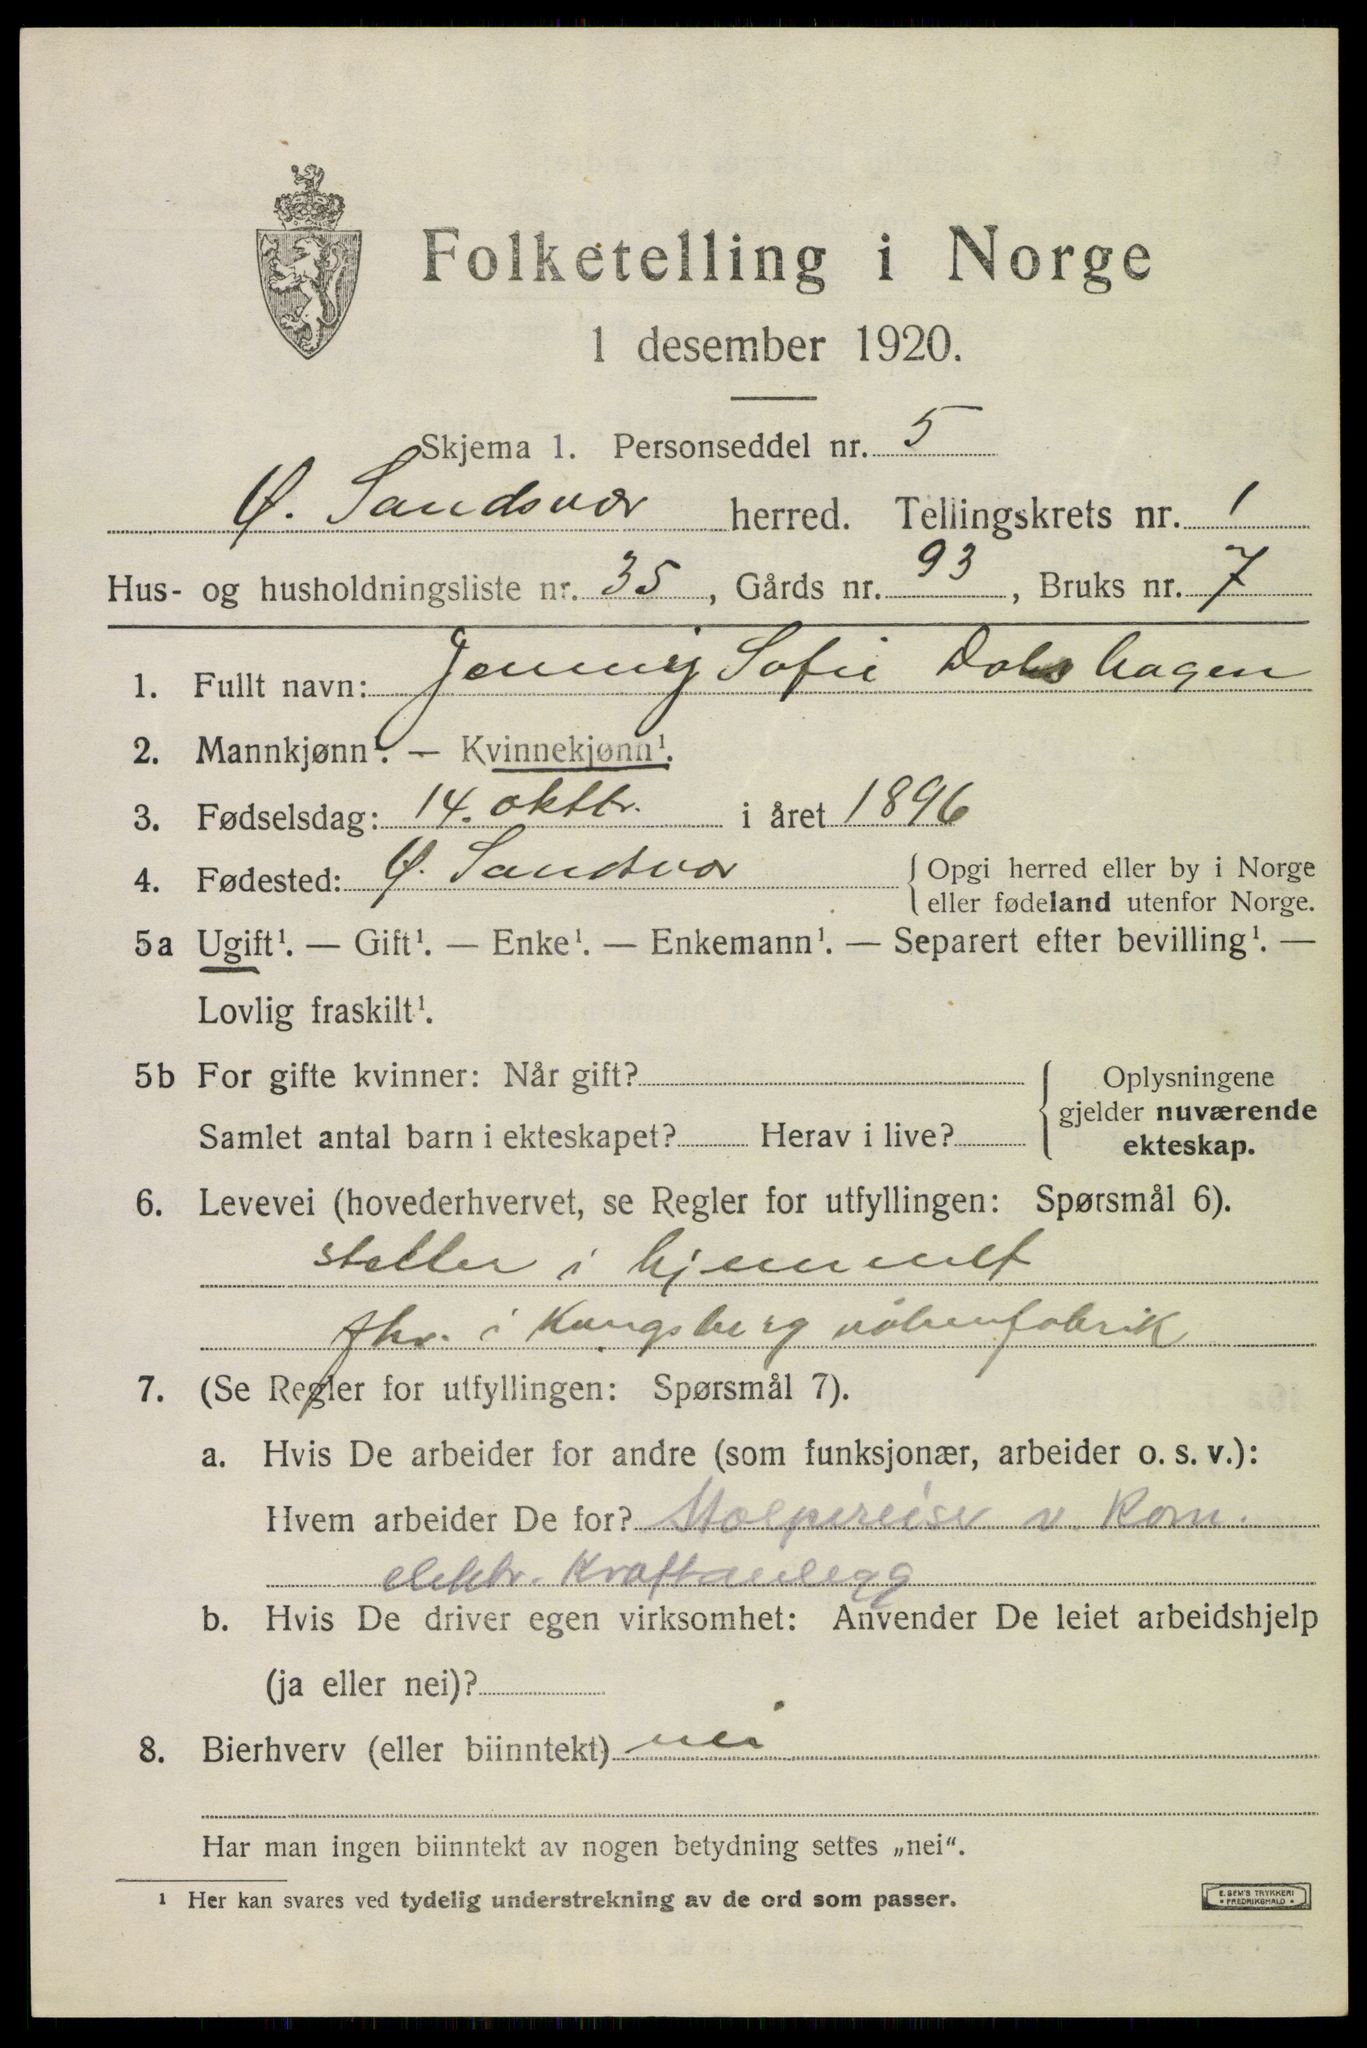 Folketelling i Norge
1 desember 1920.
Skjema 1. Personseddel nr. 5
Ø. Sandsvær herred. Tellingskrets nr. 1
Hus- og husholdningsliste nr. 35, Gårds nr. 93, Bruks nr. 7
1. Fullt navn: Jenny Sofie Dokshagen
2. Mannkjønn¹. — Kvinnekjønn¹.
3. Fødselsdag: 14. oktbr. i året 1896
4. Fødested: Ø. Sandsvær {Opgi herred eller by i Norge
eller fødeland utenfor Norge.
5a Ugift¹. — Gift¹. — Enke¹. — Enkemann¹. — Separert efter bevilling¹. —
Lovlig fraskilt¹.
5b For gifte kvinner: Når gift?
Samlet antal barn i ekteskapet? Herav i live?
Oplysningene
gjelder nuværende
ekteskap.
6. Levevei (hovederhvervet, se Regler for utfyllingen: Spørsmål 6).
steller i hjemmet
fhv. i Kongsberg våbenfabrik
7. (Se Regler for utfyllingen: Spørsmål 7).
a. Hvis De arbeider for andre (som funksjonær, arbeider o. s. v.):
Hvem arbeider De for? Stolpereiser v. Kom.
elektr. Kraftanlegg
b. Hvis De driver egen virksomhet: Anvender De leiet arbeidshjelp
(ja eller nei)?
8. Bierhverv (eller biinntekt) nei
Har man ingen biinntekt av nogen betydning settes „nei“.
¹ Her kan svares ved tydelig understrekning av de ord som passer.
E. SEM'S TRYKKERI
FREDRIKSHALD